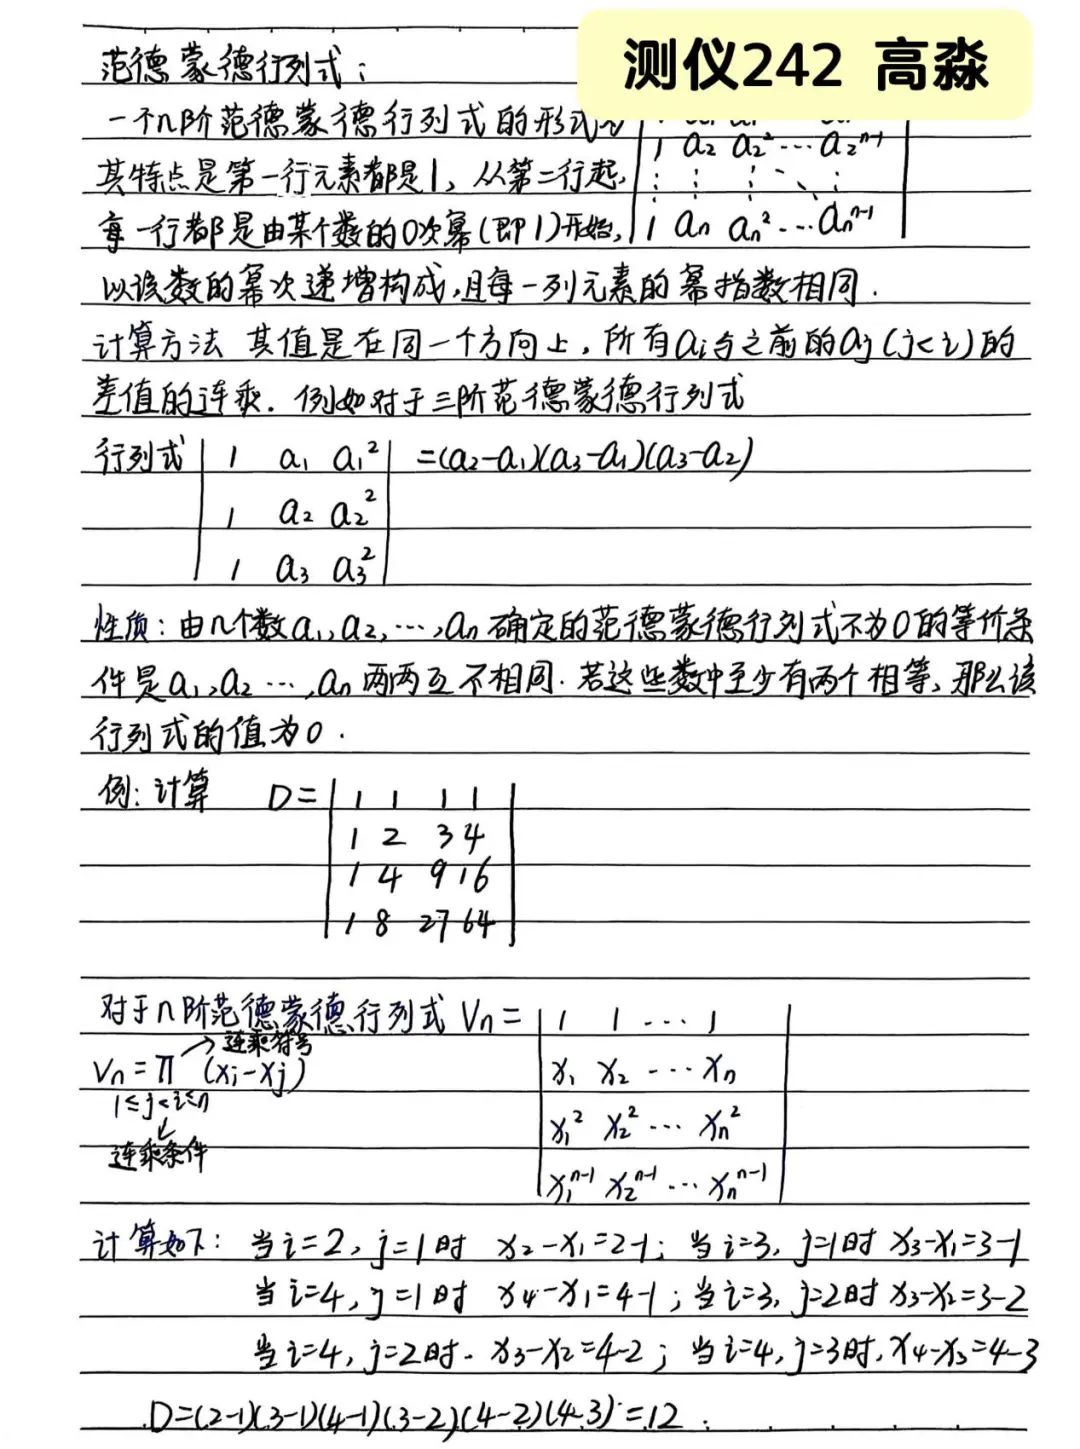 测仪242 高淼
范德蒙德行列式：
一个n阶范德蒙德行列式的形式为
1 a₂ a₂² ⋯ a₂ⁿ⁻¹
⋮ ⋮ ⋮ ⋱ ⋮
1 aₙ aₙ² ⋯ aₙⁿ⁻¹
其特点是第一行元素都是1，从第二行起，
每一行都是由某个数的0次幂(即1)开始，
以该数的幂次递增构成，且每一列元素的幂指数相同．
计算方法 其值是在同一个方向上，所有aᵢ与之前的aⱼ(j<i)的
差值的连乘．例如对于三阶范德蒙德行列式
行列式 | 1 a₁ a₁² | =(a₂-a₁)(a₃-a₁)(a₃-a₂)
1 a₂ a₂²
1 a₃ a₃²
性质：由n个数a₁,a₂,⋯,aₙ确定的范德蒙德行列式不为0的等价条
件是a₁,a₂⋯,aₙ两两互不相同．若这些数中至少有两个相等，那么该
行列式的值为0．
例：计算 D= | 1 1 1 1 |
1 2 3 4
1 4 9 16
1 8 27 64
对于n阶范德蒙德行列式Vₙ= | 1 1 ⋯ 1 |
x₁ x₂ ⋯ xₙ
x₁² x₂² ⋯ xₙ²
x₁ⁿ⁻¹ x₂ⁿ⁻¹ ⋯ xₙⁿ⁻¹
→连乘符号
Vₙ=π (xᵢ-xⱼ)
1≤j<i≤n
↓
连乘条件
计算如下：当i=2，j=1时 x₂-x₁=2-1；当i=3，j=1时 x₃-x₁=3-1
当i=4，j=1时 x₄-x₁=4-1；当i=3，j=2时 x₃-x₂=3-2
当i=4，j=2时．x₃-x₂=4-2；当i=4，j=3时，x₄-x₃=4-3
D=(2-1)(3-1)(4-1)(3-2)(4-2)(4-3)=12．